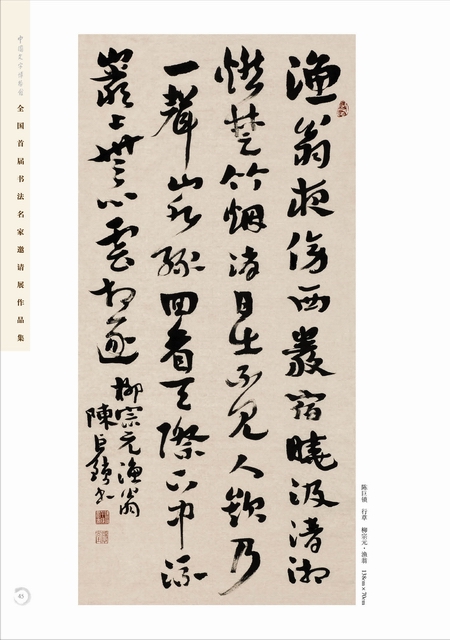 漁翁夜傍西巖宿曉汲清湘
燃楚竹烟消日出不見人欸乃
一聲山水綠回看天際下中流
巖上無心雲相逐
柳宗元漁翁
陳巨鎖書
陈巨锁 行草 柳宗元·渔翁 138cm×70cm
中国文字博物馆
全国首届书法名家邀请展作品集
45